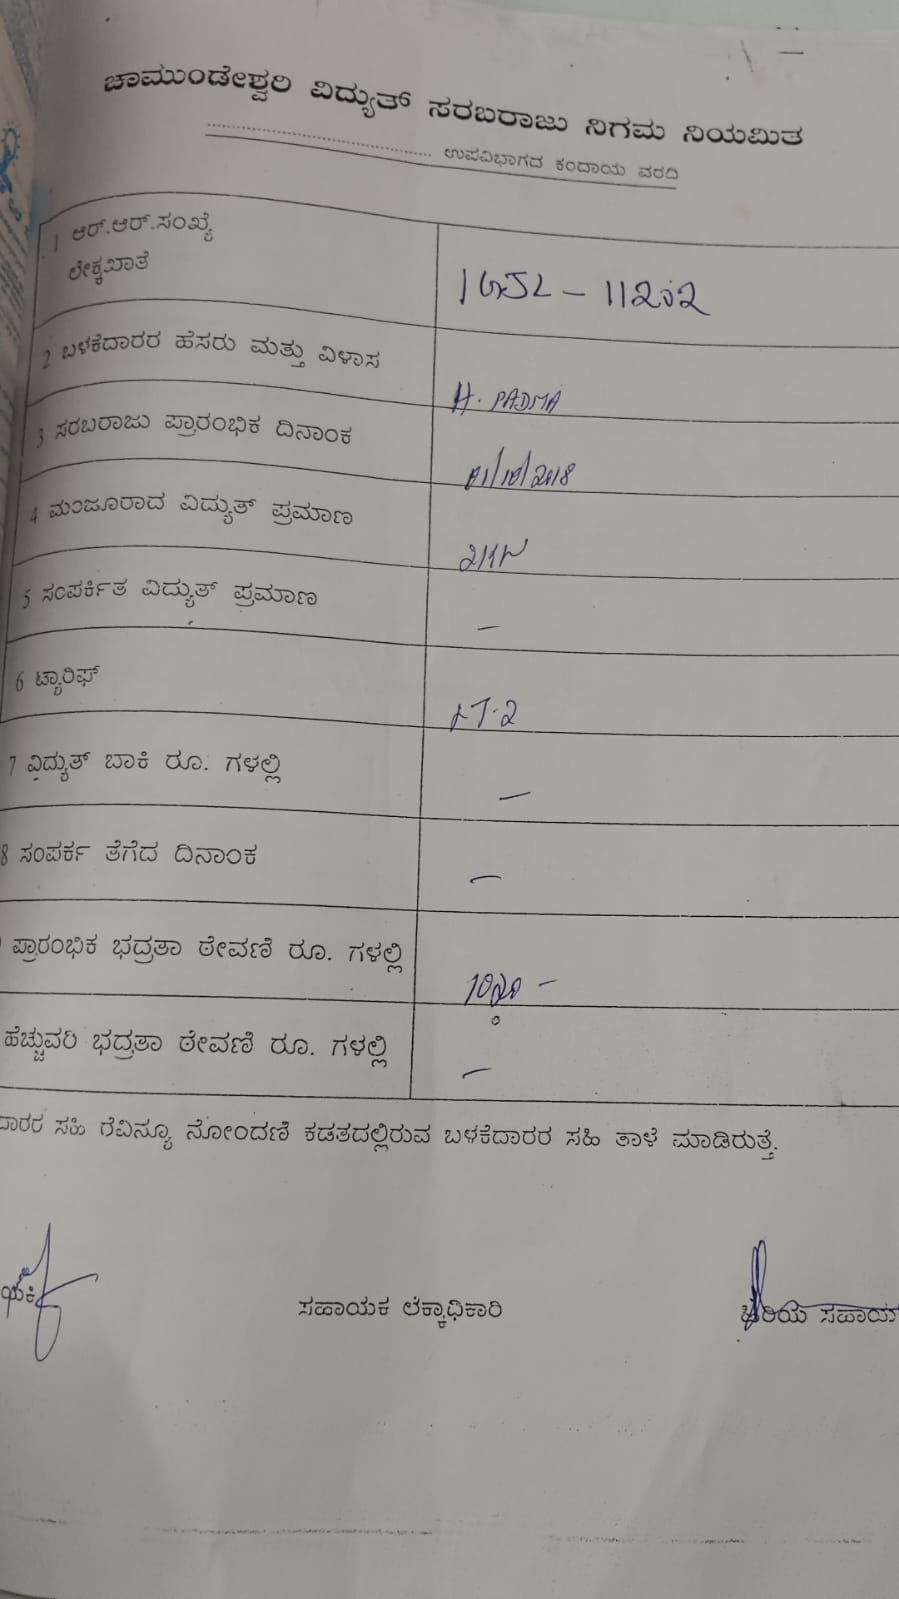 ಚಾಮುಂಡೇಶ್ವರಿ ವಿದ್ಯುತ್ ಸರಬರಾಜು ನಿಗಮ ನಿಯಮಿತ
.......................................... ಉಪವಿಭಾಗದ ಕಂದಾಯ ವರದಿ
1 ಆರ್.ಆರ್.ಸಂಖ್ಯೆ
ಲೇಕ್ಕಖಾತೆ
11202
2 ಬಳಕೆದಾರರ ಹೆಸರು ಮತ್ತು ವಿಳಾಸ
H. PADMA
3 ಸರಬರಾಜು ಪ್ರಾರಂಭಿಕ ದಿನಾಂಕ
01/10/2018
4 ಮಂಜೂರಾದ ವಿದ್ಯುತ್ ಪ್ರಮಾಣ
2KW
5 ಸಂಪರ್ಕಿತ ವಿದ್ಯುತ್ ಪ್ರಮಾಣ
–
6 ಟ್ಯಾರಿಫ್
LT-2
7 ವಿದ್ಯುತ್ ಬಾಕಿ ರೂ. ಗಳಲ್ಲಿ
–
8 ಸಂಪರ್ಕ ತೆಗೆದ ದಿನಾಂಕ
–
ಪ್ರಾರಂಭಿಕ ಭದ್ರತಾ ಠೇವಣಿ ರೂ. ಗಳಲ್ಲಿ
ಹೆಚ್ಚುವರಿ ಭದ್ರತಾ ಠೇವಣಿ ರೂ. ಗಳಲ್ಲಿ
–
ದಾರರ ಸಹಿ ರೆವಿನ್ಯೂ ನೋಂದಣಿ ಕಡತದಲ್ಲಿರುವ ಬಳಕೆದಾರರ ಸಹಿ ತಾಳೆ ಮಾಡಿರುತ್ತೆ.
ಸಹಾಯಕ ಲೆಕ್ಕಾಧಿಕಾರಿ
ಹಿರಿಯ ಸಹಾಯ